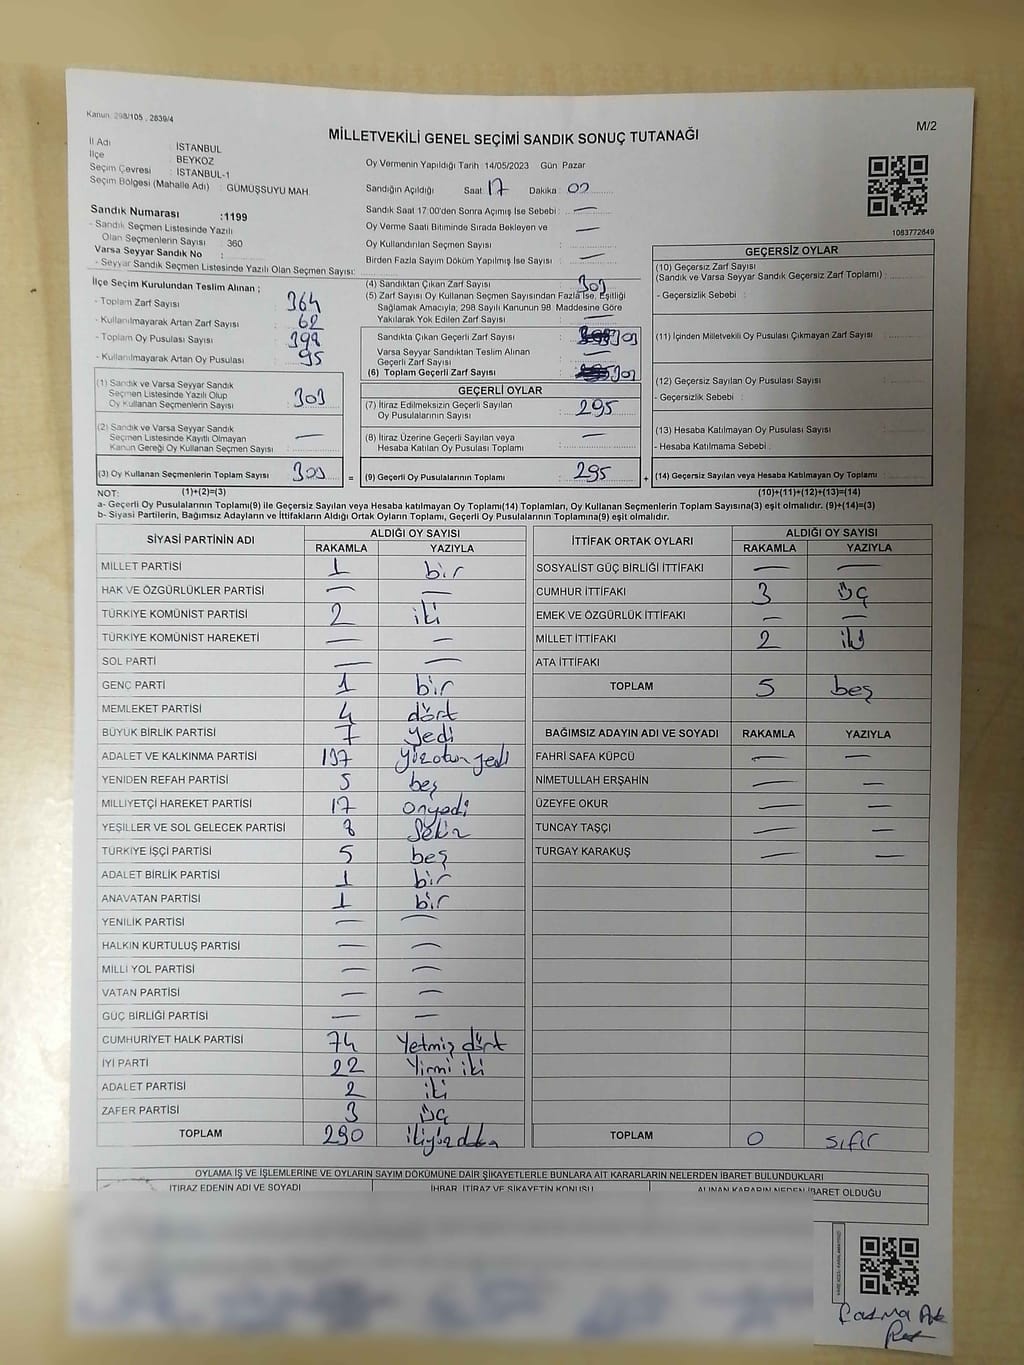 Kanun 298/105 , 2839/4
MİLLETVEKİLİ GENEL SEÇİMİ SANDIK SONUÇ TUTANAĞI
M/2
İl Adı : İSTANBUL
İlçe : BEYKOZ
Seçim Çevresi : İSTANBUL-1
Seçim Bölgesi (Mahalle Adı) : GÜMÜŞSUYU MAH
Oy Vermenin Yapıldığı Tarih 14/05/2023 Gün Pazar
Sandığın Açıldığı Saat 17 Dakika 00
Sandık Numarası :1199
- Sandık Seçmen Listesinde Yazılı
Olan Seçmenlerin Sayısı : 360
Varsa Seyyar Sandık No :
- Seyyar Sandık Seçmen Listesinde Yazılı Olan Seçmen Sayısı:
Sandık Saat 17:00'den Sonra Açımış İse Sebebi : —
Oy Verme Saati Bitiminde Sırada Bekleyen ve —
Oy Kullandırılan Seçmen Sayısı :
Birden Fazla Sayım Döküm Yapılmış İse Sayısı : —
1083772649
İlçe Seçim Kurulundan Teslim Alınan ;
- Toplam Zarf Sayısı : 364
- Kullanılmayarak Artan Zarf Sayısı : 62
- Toplam Oy Pusulası Sayısı : 398
- Kullanılmayarak Artan Oy Pusulası : 95
(1) Sandık ve Varsa Seyyar Sandık
Seçmen Listesinde Yazılı Olup
Oy Kullanan Seçmenlerin Sayısı : 303
(2) Sandık ve Varsa Seyyar Sandık
Seçmen Listesinde Kayıtlı Olmayan
Kanun Gereği Oy Kullanan Seçmen Sayısı : —
(3) Oy Kullanan Seçmenlerin Toplam Sayısı : 303 =
(4) Sandıktan Çıkan Zarf Sayısı : 303
(5) Zarf Sayısı Oy Kullanan Seçmen Sayısından Fazla İse, Eşitliği
Sağlamak Amacıyla; 298 Sayılı Kanunun 98. Maddesine Göre
Yakılarak Yok Edilen Zarf Sayısı : —
Sandıkta Çıkan Geçerli Zarf Sayısı : 303
Varsa Seyyar Sandıktan Teslim Alınan
Geçerli Zarf Sayısı : —
(6) Toplam Geçerli Zarf Sayısı : 303
GEÇERLİ OYLAR
(7) İtiraz Edilmeksizin Geçerli Sayılan
Oy Pusulalarının Sayısı : 295
(8) İtiraz Üzerine Geçerli Sayılan veya
Hesaba Katılan Oy Pusulası Toplamı : —
(9) Geçerli Oy Pusulalarının Toplamı : 295 +
GEÇERSİZ OYLAR
(10) Geçersiz Zarf Sayısı
(Sandık ve Varsa Seyyar Sandık Geçersiz Zarf Toplamı) :
- Geçersizlik Sebebi :
(11) İçinden Milletvekili Oy Pusulası Çıkmayan Zarf Sayısı :
(12) Geçersiz Sayılan Oy Pusulası Sayısı :
- Geçersizlik Sebebi :
(13) Hesaba Katılmayan Oy Pusulası Sayısı :
- Hesaba Katılmama Sebebi :
(14) Geçersiz Sayılan veya Hesaba Katılmayan Oy Pusulası Toplamı :
NOT: (1)+(2)=(3) (10)+(11)+(12)+(13)=(14)
a- Geçerli Oy Pusulalarının Toplamı(9) ile Geçersiz Sayılan veya Hesaba katılmayan Oy Pusulası Toplamı(14) Toplamları, Oy Kullanan Seçmenlerin Toplam Sayısına(3) eşit olmalıdır. (9)+(14)=(3)
b- Siyasi Partilerin, Bağımsız Adayların ve İttifakların Aldığı Ortak Oyların Toplamı, Geçerli Oy Pusulalarının Toplamına(9) eşit olmalıdır.
SİYASİ PARTİNİN ADI ALDIĞI OY SAYISI
RAKAMLA YAZIYLA
MİLLET PARTİSİ 1 bir
HAK VE ÖZGÜRLÜKLER PARTİSİ — —
TÜRKİYE KOMÜNİST PARTİSİ 2 iki
TÜRKİYE KOMÜNİST HAREKETİ — —
SOL PARTİ — —
GENÇ PARTİ 1 bir
MEMLEKET PARTİSİ 4 dört
BÜYÜK BİRLİK PARTİSİ 7 yedi
ADALET VE KALKINMA PARTİSİ 137 yüzotuzyedi
YENİDEN REFAH PARTİSİ 5 beş
MİLLİYETÇİ HAREKET PARTİSİ 17 onyedi
YEŞİLLER VE SOL GELECEK PARTİSİ 8 Sekiz
TÜRKİYE İŞÇİ PARTİSİ 5 beş
ADALET BİRLİK PARTİSİ 1 bir
ANAVATAN PARTİSİ 1 bir
YENİLİK PARTİSİ — —
HALKIN KURTULUŞ PARTİSİ — —
MİLLİ YOL PARTİSİ — —
VATAN PARTİSİ — —
GÜÇ BİRLİĞİ PARTİSİ — —
CUMHURİYET HALK PARTİSİ 74 Yetmiş dört
İYİ PARTİ 22 Yirmi iki
ADALET PARTİSİ 2 iki
ZAFER PARTİSİ 3 üç
TOPLAM 290
İTTİFAK ORTAK OYLARI ALDIĞI OY SAYISI
RAKAMLA YAZIYLA
SOSYALİST GÜÇ BİRLİĞİ İTTİFAKI — —
CUMHUR İTTİFAKI 3 üç
EMEK VE ÖZGÜRLÜK İTTİFAKI — —
MİLLET İTTİFAKI 2 iki
ATA İTTİFAKI
TOPLAM 5 beş
BAĞIMSIZ ADAYIN ADI VE SOYADI RAKAMLA YAZIYLA
FAHRİ SAFA KÜPCÜ — —
NİMETULLAH ERŞAHİN — —
ÜZEYFE OKUR — —
TUNCAY TAŞÇI — —
TURGAY KARAKUŞ — —
TOPLAM 0 sıfır
OYLAMA İŞ VE İŞLEMLERİNE VE OYLARIN SAYIM DÖKÜMÜNE DAİR ŞİKAYETLERLE BUNLARA AİT KARARLARIN NELERDEN İBARET BULUNDUKLARI
İTİRAZ EDENİN ADI VE SOYADI İHBAR, İTİRAZ VE ŞİKAYETİN KONUSU ALINAN KARARIN NEDEN İBARET OLDUĞU